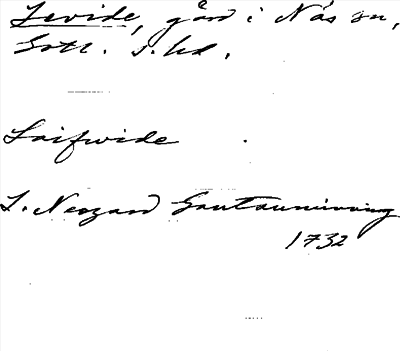 Levide, gård i Näs sn,
Gotl. s. hd.
Laifwide
L. Nergard Gautauminning
1732